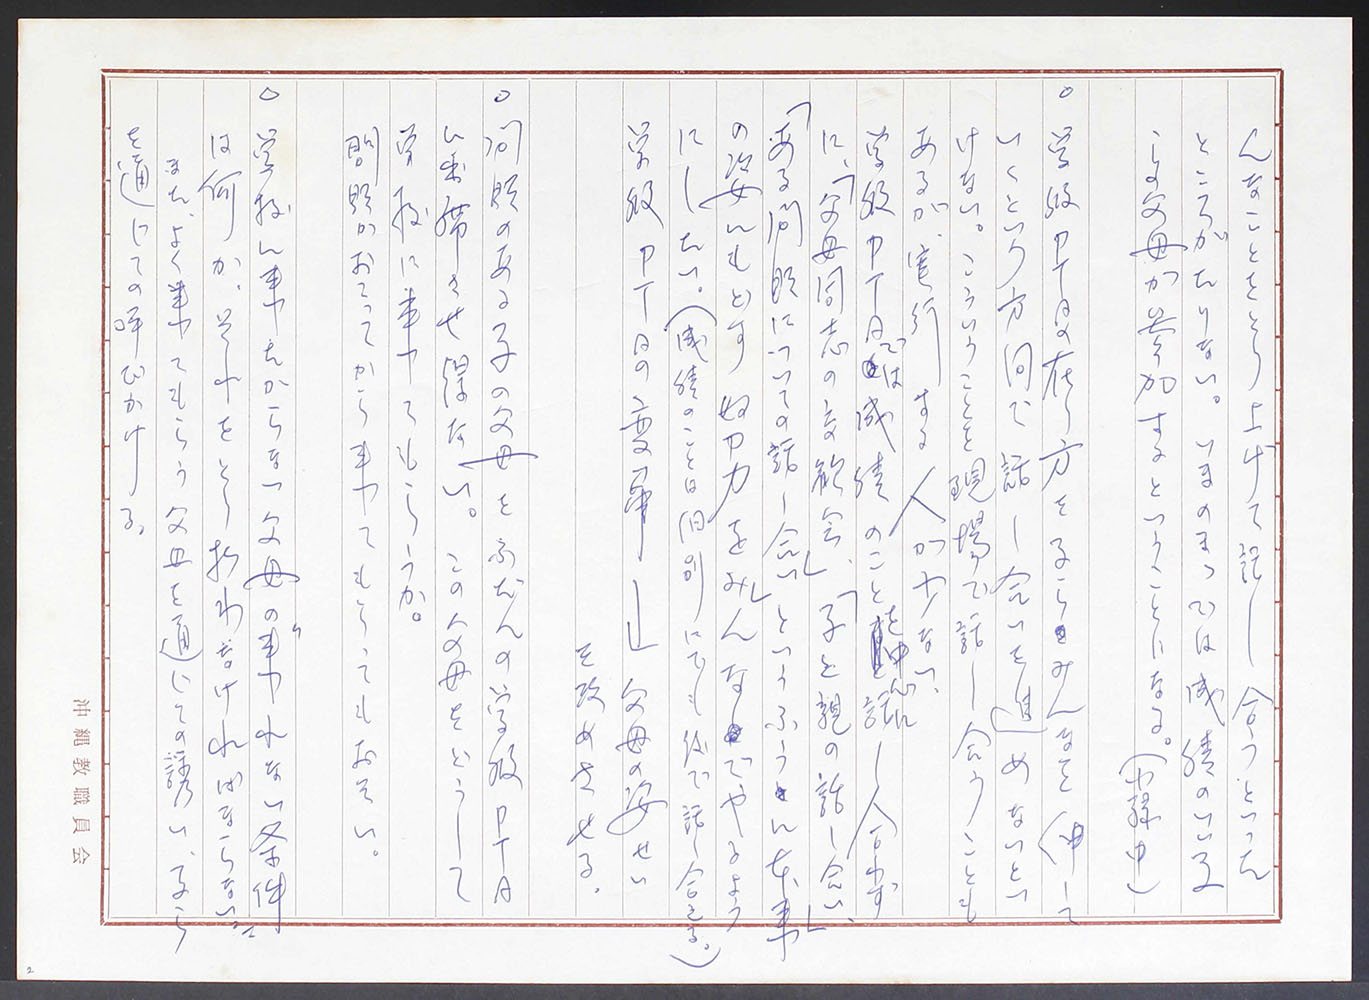 んなことをとり上げて話し合うといった
ところがたりない。いまのまゝでは成績のいい子
の父母が参加するということになる。(中)
○学級PTAの在り方をみんなを伸して
いくという方向で話し合いを進めないとい
けない。こういうことを現場で話し合うことも
あるが、実行する人が少ない、
学級PTAでは成績のこと を中心に話し合わず
に、「父母同志の交歓会」、「子と親の話し合い」
「ある問題についての話し合い」というふうに本来
の姿にもどす努力をみんなでやるよう
にしたい。(成績のことは個別にでも後で話し合える。)
学級PTAの変革― 父母の姿せい
を改めさせる。
○問題のある子の父母とふだんの学級PTA
に携帯させ得ない。この父母をどうして
学校に来てもらうか。
問題がおこってから来てもらってもおそい。
○学校に来たがらない父母の"来れない条件"
は何か、それをとり払わなければならない。
また、よく来てもらう父母を通じての誘い、子ら
を通じての呼びかける。
沖縄教職員会
2